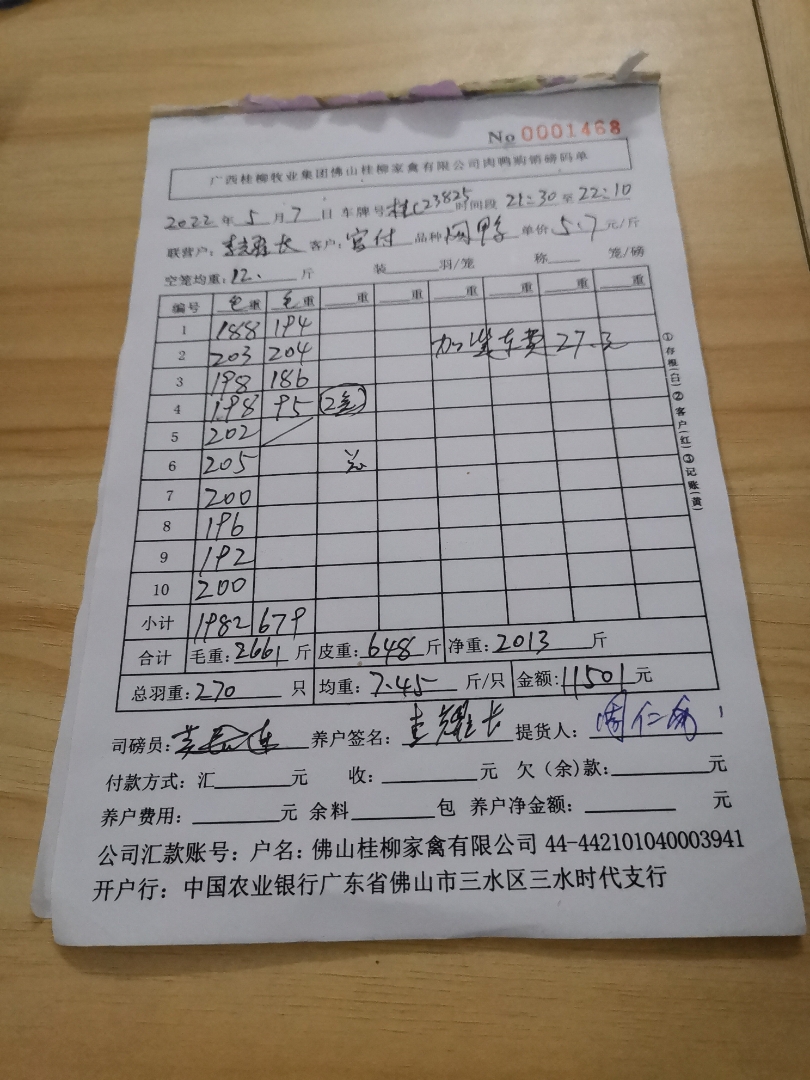 No 0001468
广西桂柳牧业集团佛山桂柳家禽有限公司肉鸭购销磅码单
2022年5月7日 车牌号桂C23825 时间段 21:30 至 22:10
联营户: 长 客户: 官付 品种 单价 5.7 元/斤
空笼均重: 12. 斤 装 羽/笼 称 笼/磅
编号 毛重 毛重 重 重 重 重 重 重
1 188 194
2 203 204 加 车费 27.
3 198 186
4 198 95
5 202
6 205
7 200
8 196
9 192
10 200
小计 1982 679
合计 毛重: 2661 斤 皮重: 648 斤 净重: 2013 斤
总羽重: 270 只 均重: 7.45 斤/只 金额: 11501 元
司磅员: 养户签名: 耀长 提货人: 周仁
付款方式: 汇 元 收: 元 欠(余)款: 元
养户费用: 元 余料 包 养户净金额: 元
公司汇款账号: 户名: 佛山桂柳家禽有限公司 44-442101040003941
开户行: 中国农业银行广东省佛山市三水区三水时代支行
①存根(白)②客户(红)③记账(黄)